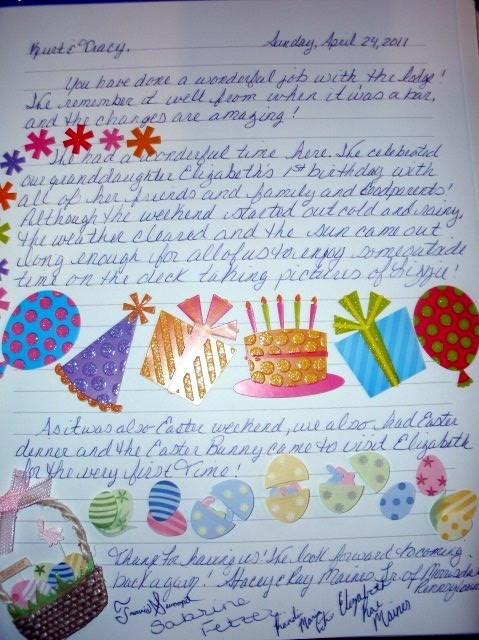 Kurt & Tracy, Sunday, April 24, 2011
You have done a wonderful job with the lodge!
We remember it well from when it was a bar,
and the changes are amazing!
We had a wonderful time here. We celebrated
our granddaughter Elizabeth's 1st birthday with
all of her friends and family and Godparents!
Although the weekend started out cold and rainy,
the weather cleared and the sun came out
long enough for all of us to enjoy some outside
time on the deck taking pictures of Lizzie!
As it was also Easter weekend, we also had Easter
dinner and the Easter Bunny came to visit Elizabeth
for the very first time!
Thanx for having us! We look forward to coming
back again! Stacey & Ray Maines Jr. of
Sabrina
Fetzer
Elizabeth
Maines